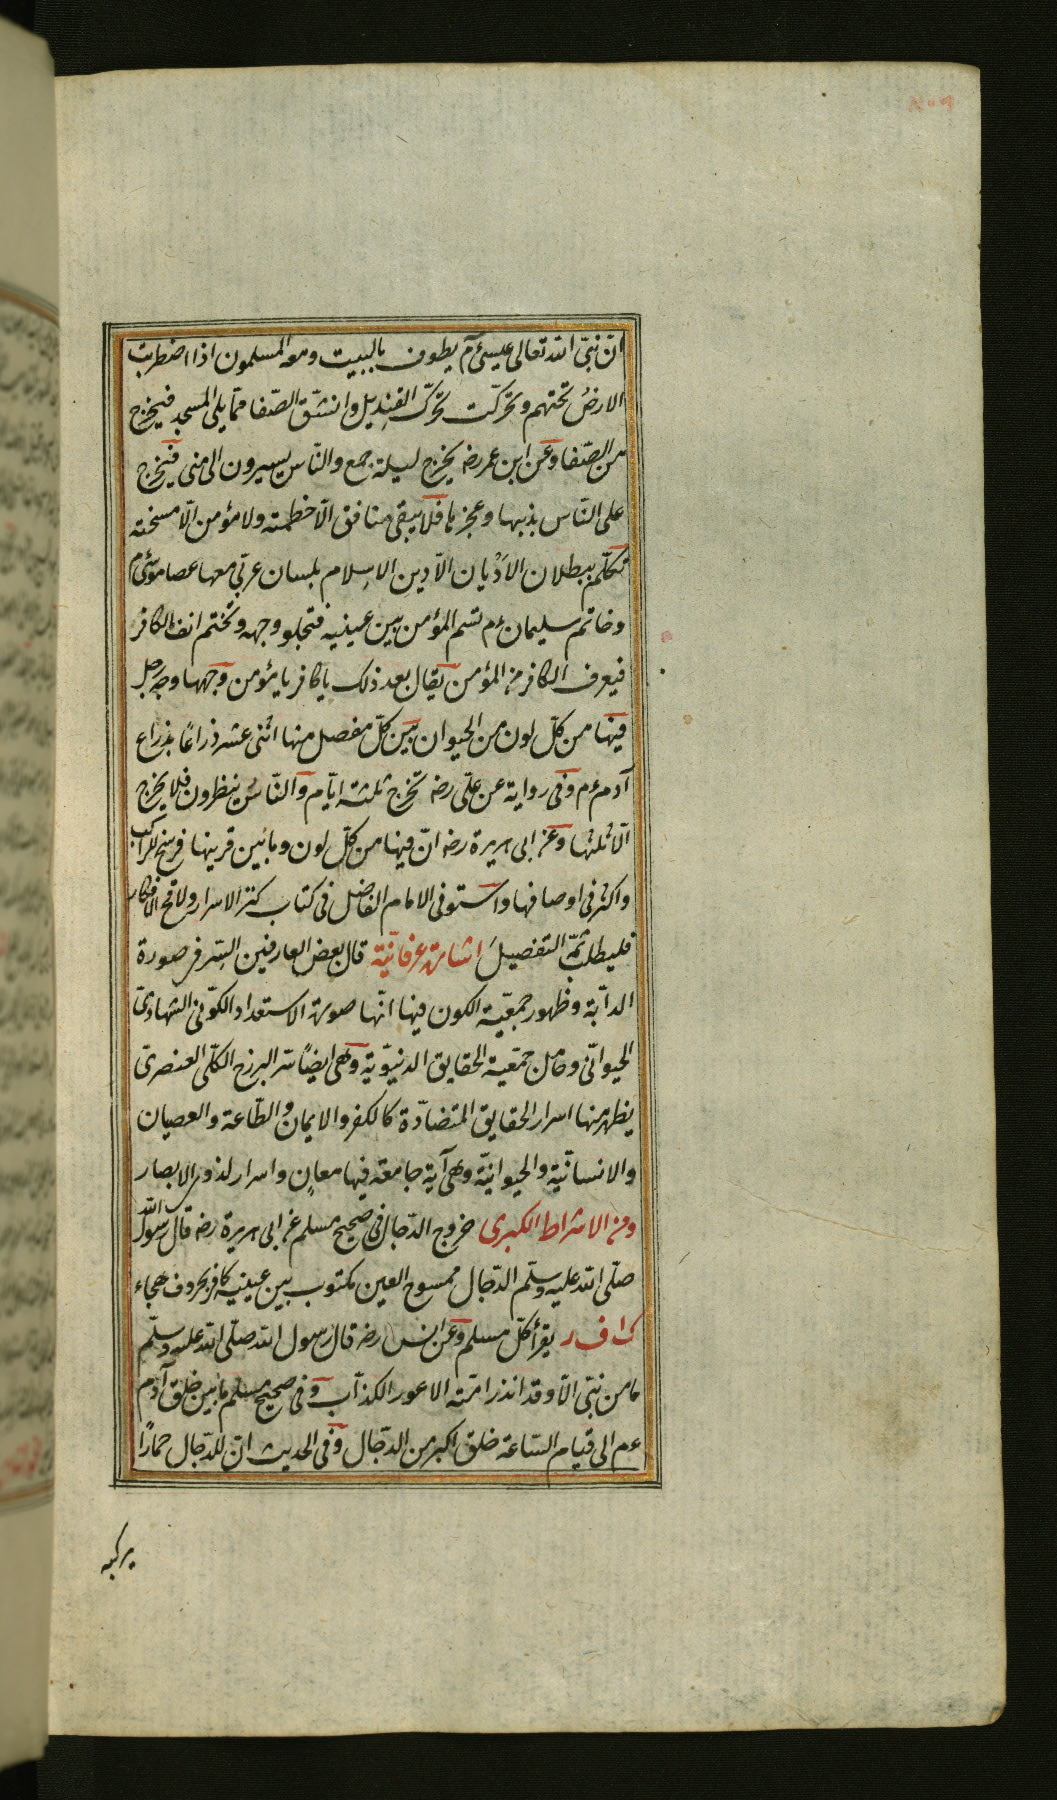 انّ نبىّ الله تعالى عيسى ءم يطوف بالبيت ومعه المسلمون اذا اضطربت
الارضُ تحتهم وتحرّكت تحرّك القنديل وانشقّ الصّفا ممّا يلى المسجد فيخرج
من الصّفا وعن ابن عمر رضه يخرج ليلة جمع والنّاس يسيرون الى منى فيخرج
على النّاس بذنبها وعجزها فلا يبقى منافق الّا خطمته ولا مؤمن الّا مسحته
تكلّم ببطلان الاَدْيان الّا دين الاسلام بلسان عربّى معها عصا موسى ءم
وخاتم سليمان ءم تسم المؤمن بين عينيه فتجلو وجهه وتختم انف الكافر
فيعرف الكافر من المؤمن يقال بعد ذلك ياكافر يا مؤمن وجهها وجه رجل
فيها من كلّ لون من الحيوان بين كلّ مفصل منها اثنى عشر ذراعًا بذراع
آدم ءم وفى رواية عن علّى رضه تخرج ثلثة ايّام والنّاسُ ينظرون فلا يخرج
الّا ثلثها وعن ابى هريرة رضه انّ فيها من كلّ لون وما بين قرنيها فرسخ للراكب
واكثر فى اوصافها واستوفى الامام الفاضل فى كتاب كنز الاسرار ولاقح الافكار
فليطلب ثمّه التفصيلَ اشارة عرفانيّة قال بعض العارفين السّر فى صورة
الدابّة وظهور جمعيّة الكون فيها انّها صورة الاستعداد الكوّنى الشهادىّ
الحيوانّى وحامل جمّعية الحقايق الدنيوّية وهى ايضًا سّر البرزخ الكلّى العنصرىّ
يظهر منها اسرار الحقايق المتضادّة كالكفر والايمان والطّاعة والعصيان
والانسانيّة والحيوانيّة وهى آية جامعة فيها معانٍ واسرار لذوى الابصار
ومن الاشراط الكبرى خروج الدجّال فى صحيح مسلم عن ابى هريرة رضه قال رسول الله
صلّى الله عليه وسلّم الدجّال ممسوح العين مكتوب بين عينيه كافر بحروف هجاء
ك ا ف ر يقرأ كلّ مسلم وعن انس رضه قال رسول الله صلّى الله عليه وسلّم
ما من نبّى الّا وقد انذر امّته الاعور الكذّاب وفى صحيح مسلم ما بين خلق آدم
ءم الى قيام السّاعة خلق اكبر من الدجّال وفى الحديث انّ للدجّال حمارًا
يركبه